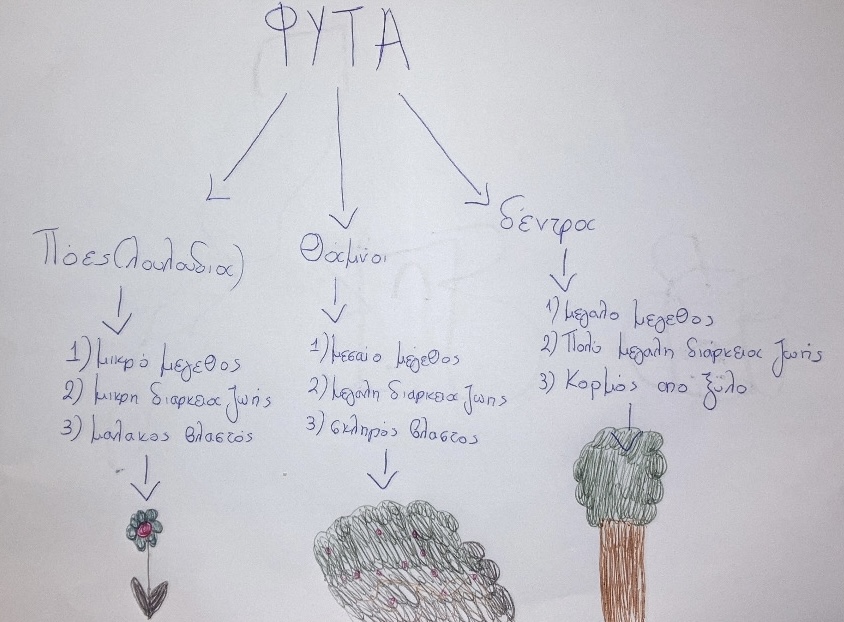 ΦΥΤΑ
Πόες(λουλούδια)
1) μικρό μέγεθος
2) μικρη διαρκεια ζωής
3) μαλακος βλαστός
Θάμνοι
1) μεσαίο μέγεθος
2) μεγάλη διάρκεια ζωης
3) σκληρός βλαστος
δέντρα
1) μεγαλο μεγεθος
2) Πολύ μεγαλη διάρκεια ζωής
3) Κορμός απο ξύλο